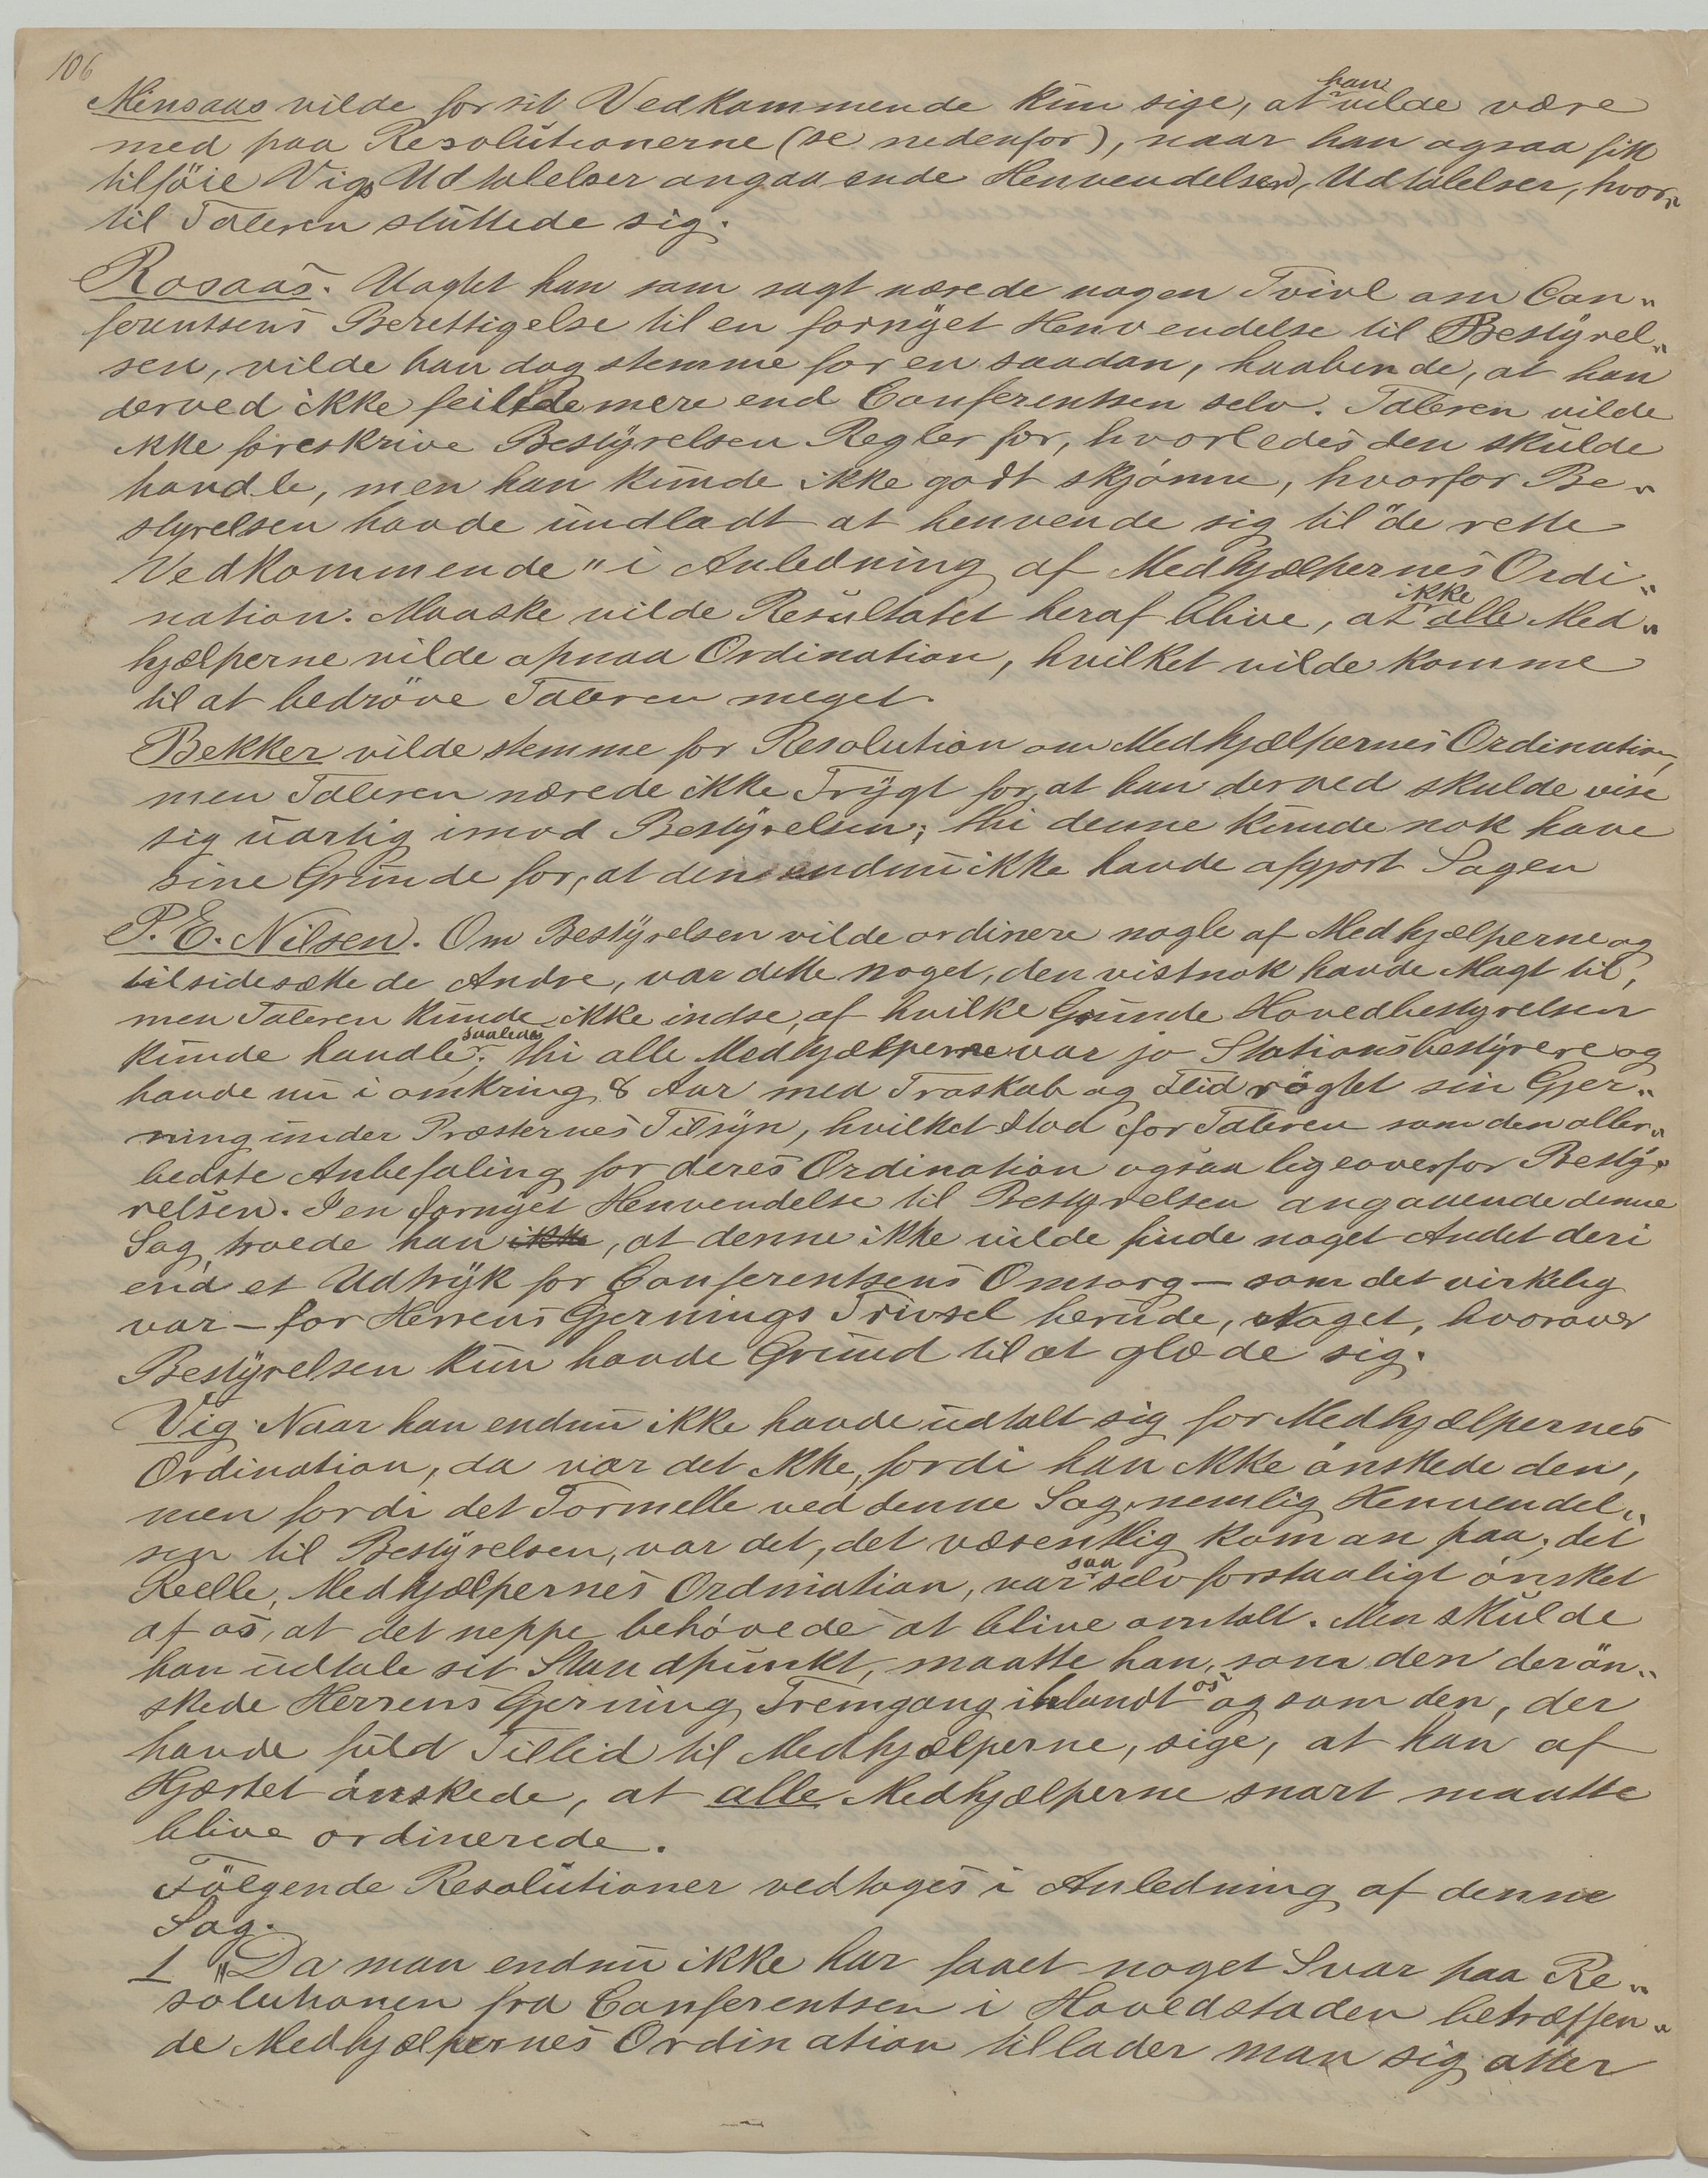 106
Minsaas vilde for sit Vedkommende kun sige, at han vilde være
med paa Resolutionerne (se nedenfor), naar han ogsaa fik
tilföie Vigs Udtalelser angaaende Henvendelsen, Udtalelser, hvor„
til Taleren sluttede sig.
Rosaas. Uagtet han som sagt nærede nogen Tvivl om Con„
ferentsens Berettigelse til en fornyet Henvendelse til Bestyrel„
sen, vilde han dog stemme for en saadan, haabende, at han
derved ikke feilede mere end Conferentsen selv. Taleren vilde
ikke foreskrive Bestyrelsen Regler for, hvorledes den skulde
handle, men han kunde ikke godt skjönne, hvorfor Be„
styrelsen havde undladt at henvende sig til "de rette
Vedkommende" i Anledning af Medhjælpernes Ordi„
nation. Maaske vilde Resultatet heraf blive, at ikke alle Med„
hjælperne vilde opnaa Ordination, hvilket vilde komme
til at bedröve Taleren meget.
Bekker vilde stemme for Resolution om Medhjælpernes Ordination,
men Taleren nærede ikke Frygt for, at han derved skulde vise
sig uartig imod Bestyrelsen; thi denne kunde nok have
sine Grunde for, at den endnu ikke havde afgjort Sagen
P. E. Nilsen. Om Bestyrelsen vilde ordinere nogle af Medhjælperne og
tilsidesætte de Andre, var dette noget, den vistnok havde Magt til,
men Taleren kunde ikke indse, af hvilke Grunde Hovedbestyrelsen
kunde handle saaledes; thi alle Medhjælperne var jo Stationsbestyrere og
havde nu i omkring 8 Aar med Troskab og Flid rögtet sin Gjer„
ning under Præsternes Tilsyn, hvilket stod for Taleren som den aller„
bedste Anbefaling for deres Ordination ogsaa ligeoverfor Besty„
relsen. I en fornyet Henvendelse til Bestyrelsen angaaende denne
Sag troede han ikke, at denne ikke vilde finde noget Andet deri
end et Udtryk for Conferentsens Omsorg — som det virkelig
var — for Herrens Gjernings Trivsel herude, Noget, hvorover
Bestyrelsen kun havde Grund til at glæde sig.
Vig. Naar han endnu ikke havde udtalt sig for Medhjælpernes
Ordination, da var det ikke, fordi han ikke önskede den,
men fordi det Formelle ved denne Sag, nemlig Henvendel„
sen til Bestyrelsen, var det, det væsentlig kom an paa; det
Reelle, Medhjælpernes Ordination, var saa selvforstaaligt önsket
af os, at det neppe behövede at blive omtalt. Men skulde
han udtale sit Standpunkt, maatte han, som den der ön„
skede Herrens Gjerning Fremgang iblandt os og som den, der
havde fuld Tillid til Medhjælperne, sige, at han af
Hjertet önskede, at alle Medhjælperne snart maatte
blive ordinerede.
Fölgende Resolutioner vedtoges i Anledning af denne
Sag.
1 „Da man endnu ikke har faaet noget Svar paa Re„
solutionen fra Conferentsen i Hovedstaden betræffen„
de Medhjælpernes Ordination tillader man sig atter